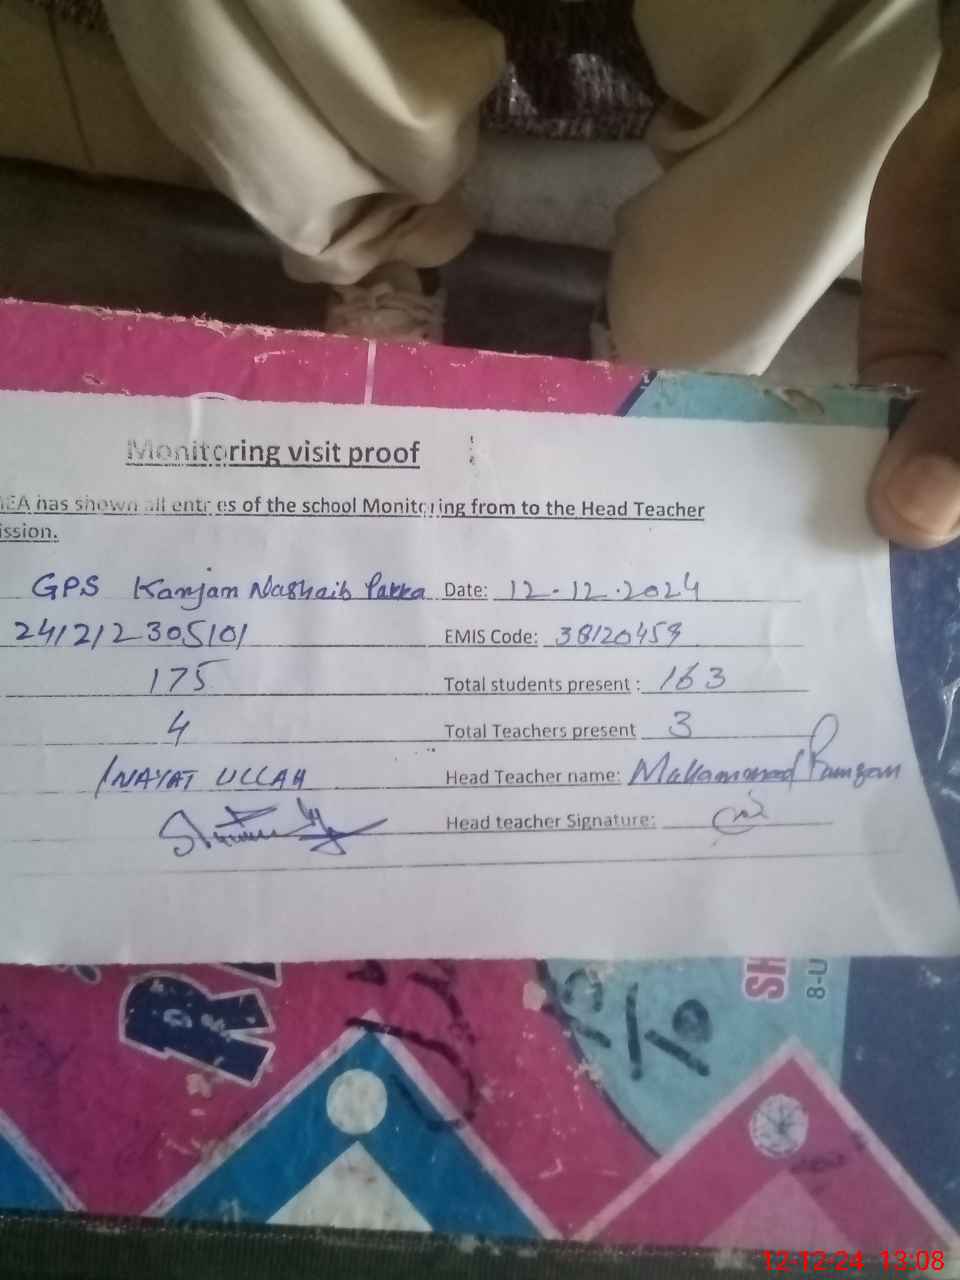 Monitoring visit proof
MEA has shown all entries of the school Monitoring from to the Head Teacher
ission.
GPS Kanjan Nashaib Pakka Date: 12-12-2024
24121230510/ EMIS Code: 38120459
175 Total students present : 163
4 Total Teachers present 3
INAYAT ULLAH Head Teacher name: Mahammad Ramzan
Head teacher Signature:
SH
8-U
12-12-24 13:08